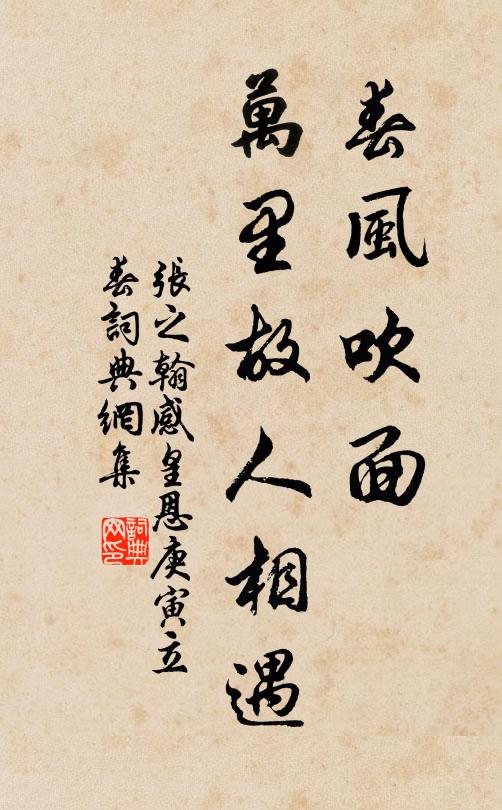 春風吹面
萬里故人相遇
張之翰感皇恩庚寅立
春詞典網集
詞典
网印